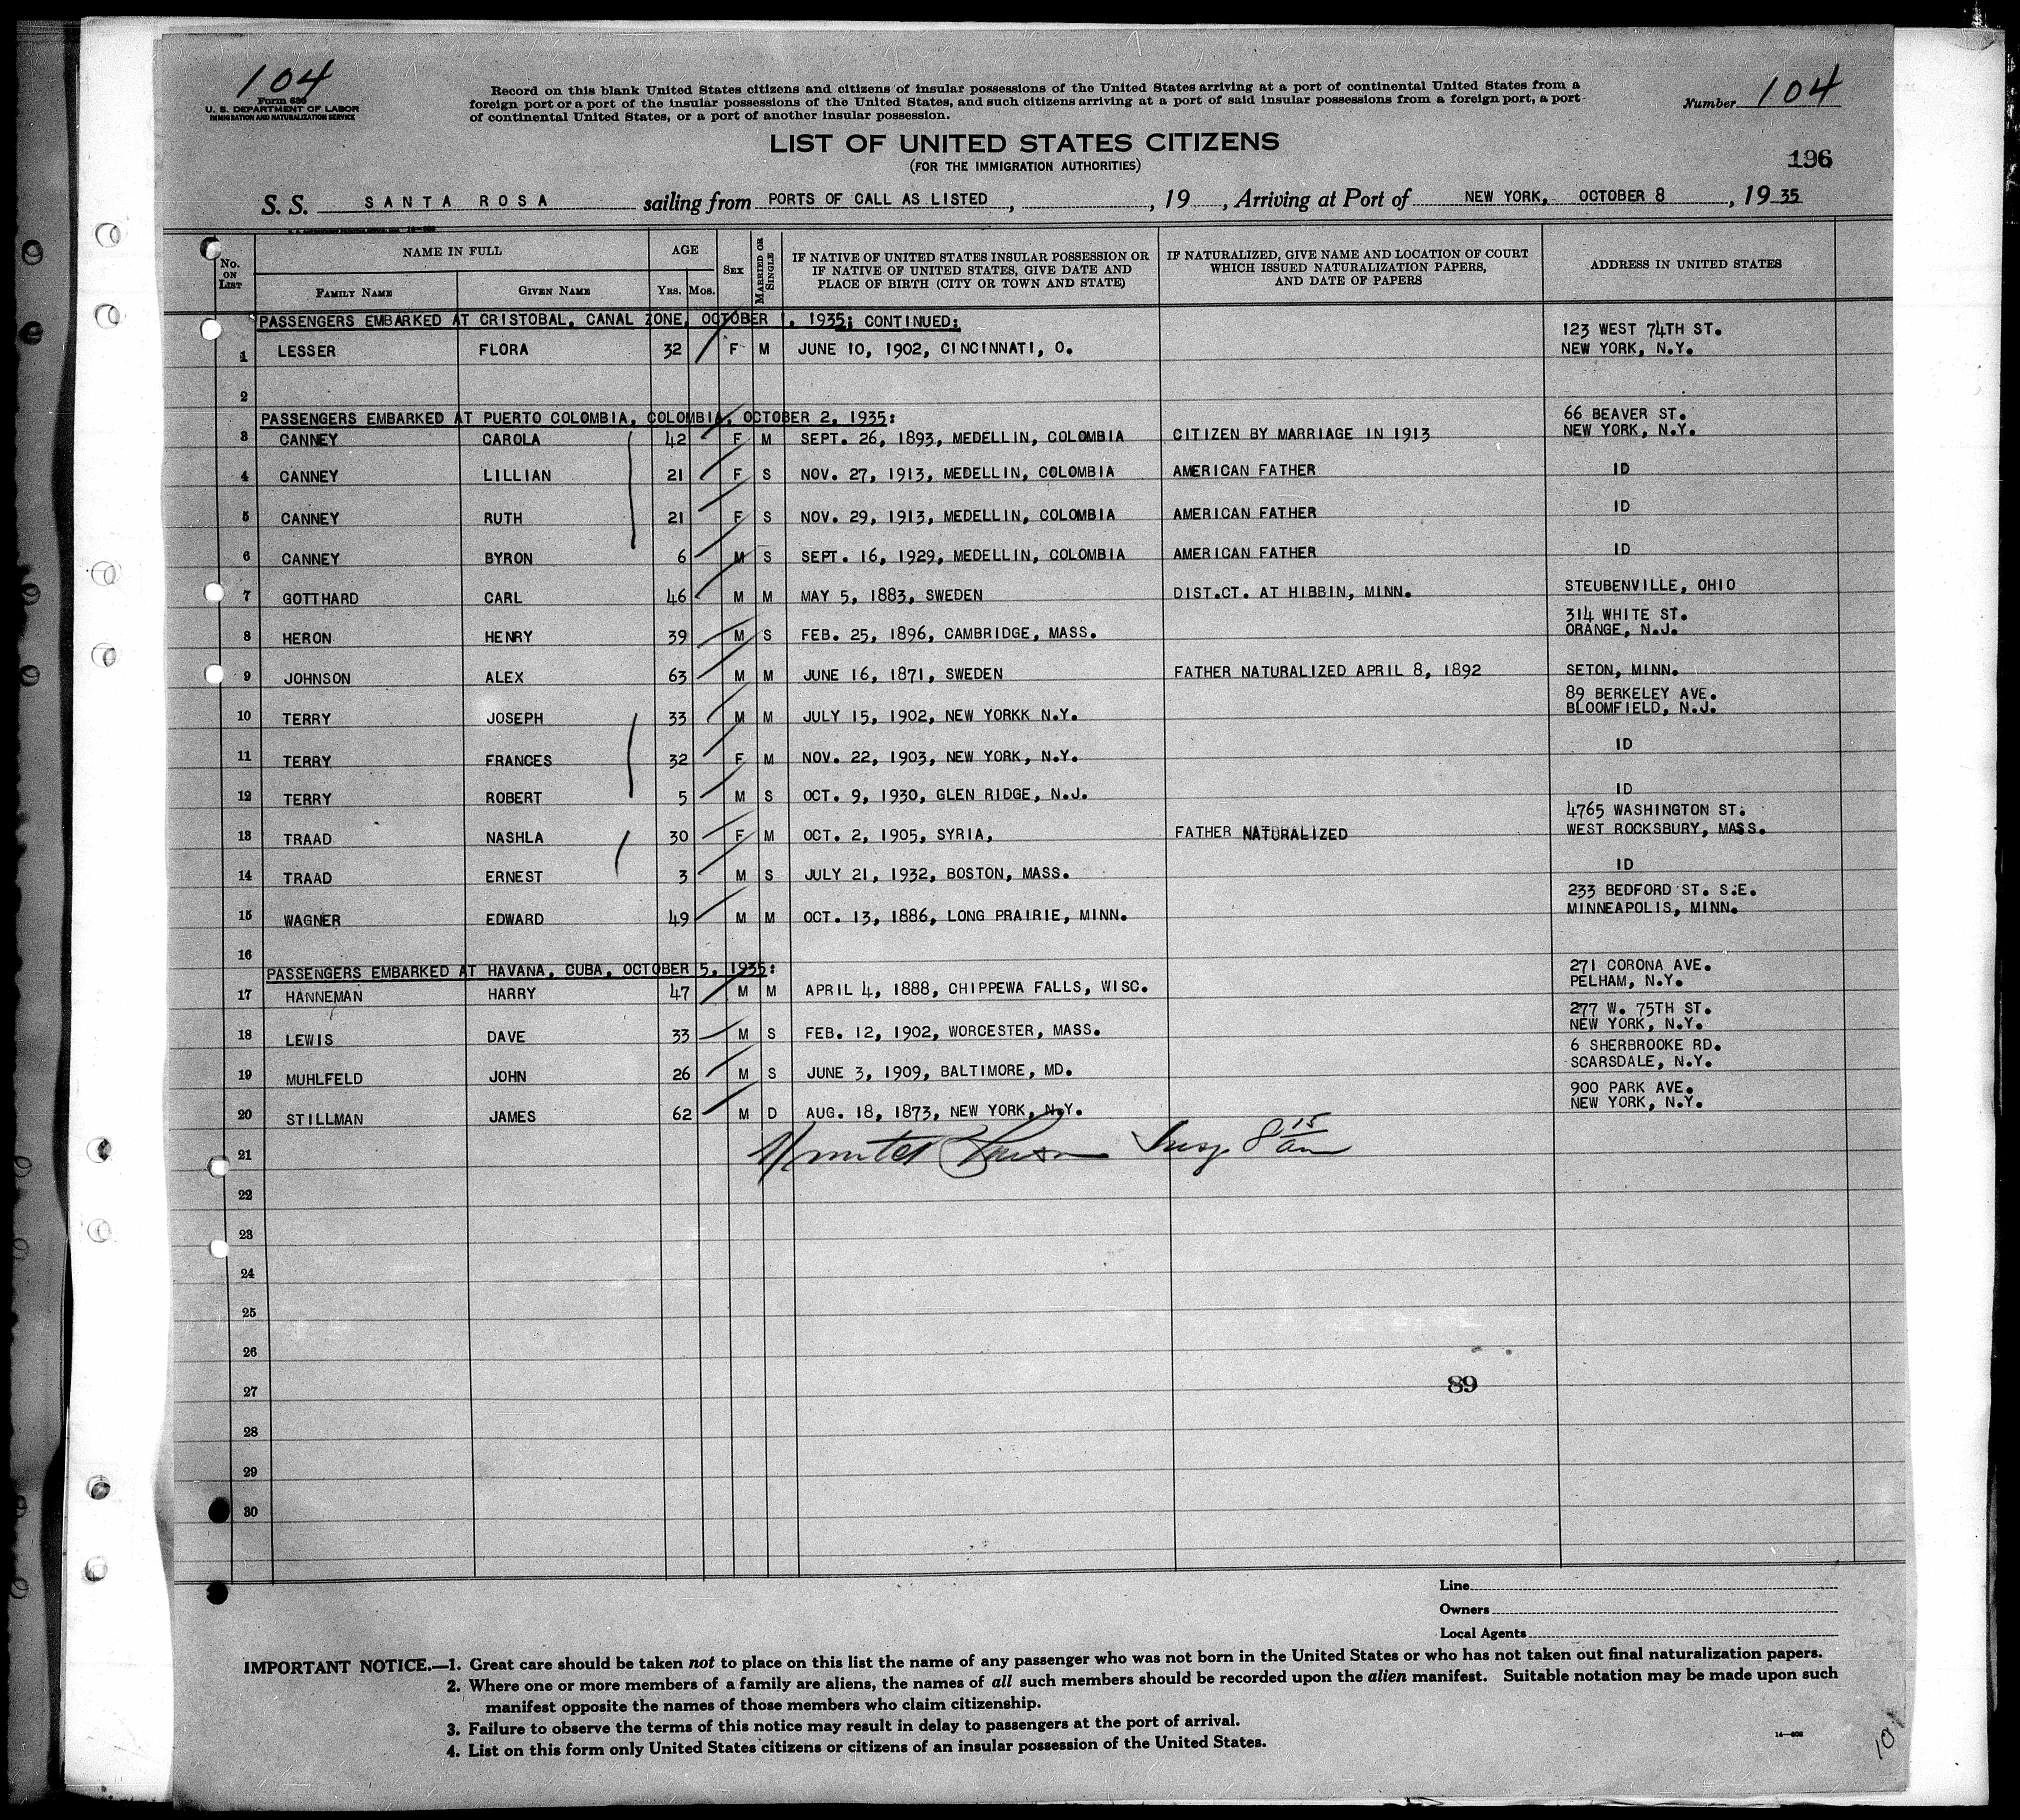 104
Form 630
U. S. DEPARTMENT OF LABOR
IMMIGRATION AND NATURALIZATION SERVICE
Record on this blank United States citizens and citizens of insular possessions of the United States arriving at a port of continental United States from a
foreign port or a port of the insular possessions of the United States, and such citizens arriving at a port of said insular possessions from a foreign port, a port
of continental United States, or a port of another insular possession.
Number 104
LIST OF UNITED STATES CITIZENS
(FOR THE IMMIGRATION AUTHORITIES)
196
S. S. SANTA ROSA sailing from PORTS OF CALL AS LISTED , , 19 , Arriving at Port of NEW YORK, OCTOBER 8 , 19 35
No. ON LIST
NAME IN FULL
FAMILY NAME GIVEN NAME
AGE
YRS. MOS.
SEX
MARRIED OR SINGLE
IF NATIVE OF UNITED STATES INSULAR POSSESSION OR
IF NATIVE OF UNITED STATES, GIVE DATE AND
PLACE OF BIRTH (CITY OR TOWN AND STATE)
IF NATURALIZED, GIVE NAME AND LOCATION OF COURT
WHICH ISSUED NATURALIZATION PAPERS,
AND DATE OF PAPERS
ADDRESS IN UNITED STATES
PASSENGERS EMBARKED AT CRISTOBAL, CANAL ZONE, OCTOBER 1, 1935; CONTINUED:
123 WEST 74TH ST.
1 LESSER FLORA 32 F M JUNE 10, 1902, CINCINNATI, O. NEW YORK, N.Y.
2
PASSENGERS EMBARKED AT PUERTO COLOMBIA, COLOMBIA, OCTOBER 2, 1935:
66 BEAVER ST.
3 CANNEY CAROLA 42 F M SEPT. 26, 1893, MEDELLIN, COLOMBIA CITIZEN BY MARRIAGE IN 1913 NEW YORK, N.Y.
4 CANNEY LILLIAN 21 F S NOV. 27, 1913, MEDELLIN, COLOMBIA AMERICAN FATHER ID
5 CANNEY RUTH 21 F S NOV. 29, 1913, MEDELLIN, COLOMBIA AMERICAN FATHER ID
6 CANNEY BYRON 6 M S SEPT. 16, 1929, MEDELLIN, COLOMBIA AMERICAN FATHER ID
7 GOTTHARD CARL 46 M M MAY 5, 1883, SWEDEN DIST.CT. AT HIBBIN, MINN. STEUBENVILLE, OHIO
314 WHITE ST.
8 HERON HENRY 39 M S FEB. 25, 1896, CAMBRIDGE, MASS. ORANGE, N.J.
9 JOHNSON ALEX 63 M M JUNE 16, 1871, SWEDEN FATHER NATURALIZED APRIL 8, 1892 SETON, MINN.
89 BERKELEY AVE.
10 TERRY JOSEPH 33 M M JULY 15, 1902, NEW YORKK N.Y. BLOOMFIELD, N.J.
11 TERRY FRANCES 32 F M NOV. 22, 1903, NEW YORK, N.Y. ID
12 TERRY ROBERT 5 M S OCT. 9, 1930, GLEN RIDGE, N.J. ID
4765 WASHINGTON ST.
13 TRAAD NASHLA 30 F M OCT. 2, 1905, SYRIA, FATHER NATURALIZED WEST ROCKSBURY, MASS.
14 TRAAD ERNEST 3 M S JULY 21, 1932, BOSTON, MASS. ID
233 BEDFORD ST. S.E.
15 WAGNER EDWARD 49 M M OCT. 13, 1886, LONG PRAIRIE, MINN. MINNEAPOLIS, MINN.
16
PASSENGERS EMBARKED AT HAVANA, CUBA, OCTOBER 5, 1935:
271 CORONA AVE.
17 HANNEMAN HARRY 47 M M APRIL 4, 1888, CHIPPEWA FALLS, WISC. PELHAM, N.Y.
277 W. 75TH ST.
18 LEWIS DAVE 33 M S FEB. 12, 1902, WORCESTER, MASS. NEW YORK, N.Y.
6 SHERBROOKE RD.
19 MUHLFELD JOHN 26 M S JUNE 3, 1909, BALTIMORE, MD. SCARSDALE, N.Y.
900 PARK AVE.
20 STILLMAN JAMES 62 M D AUG. 18, 1873, NEW YORK, N.Y. NEW YORK, N.Y.
21 Insp. 8 15 am
22
23
24
25
26
27 89
28
29
30
Line
Owners
Local Agents
IMPORTANT NOTICE.—1. Great care should be taken not to place on this list the name of any passenger who was not born in the United States or who has not taken out final naturalization papers.
2. Where one or more members of a family are aliens, the names of all such members should be recorded upon the alien manifest. Suitable notation may be made upon such
manifest opposite the names of those members who claim citizenship.
3. Failure to observe the terms of this notice may result in delay to passengers at the port of arrival.
4. List on this form only United States citizens or citizens of an insular possession of the United States.